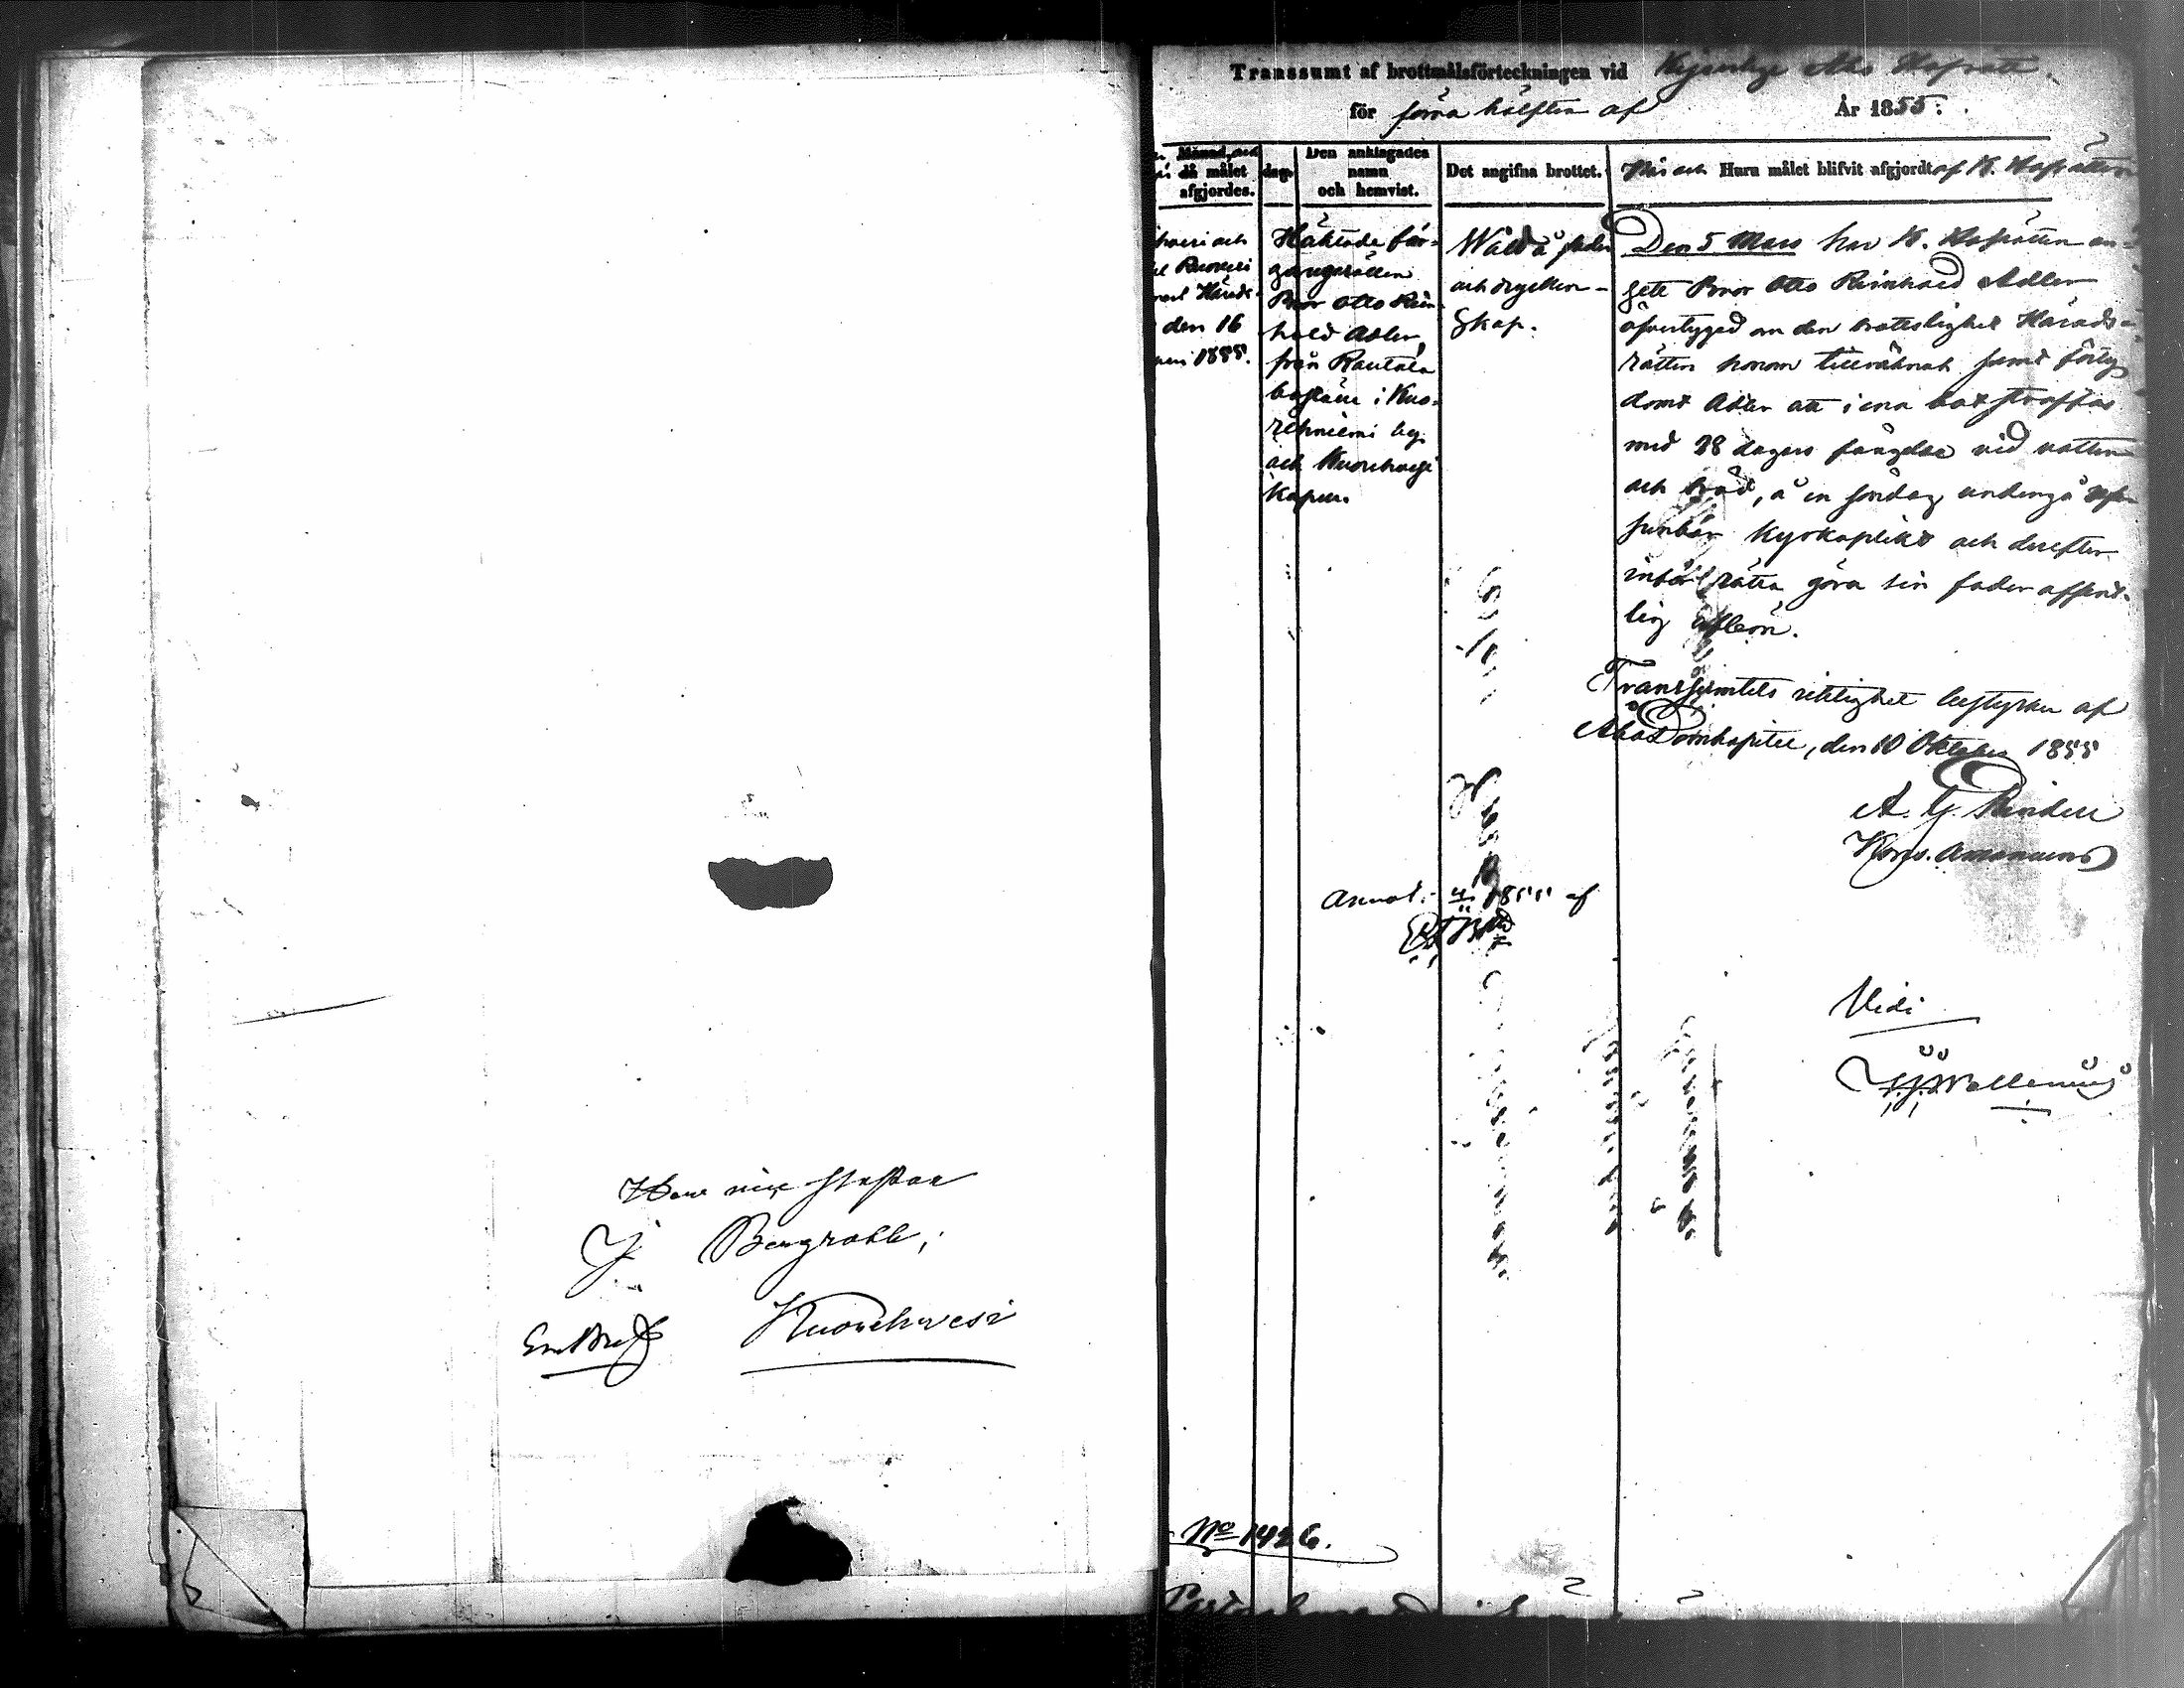 J Bergroth,
Kuorehvesi
Transsumt af brottmålsförteckningen vid Kejserlige Åbo Hofrätt
för förra hälften af År 1855.
Månad, och
då målet
afgjordes.
dag.
Den anklagades
namn
och hemvist.
Det angifna brottet.
När och Huru målet blifvit afgjordt af K. Hofrätten
och
Ruovesi
Härads-
den 16
1855.
Häktade för-
Otto Rein-
hold Adler,
från Rautala
i Kuo-
rehniemi by
och Kuorehvesi
kapell.
Wåld å fader
och drycken-
skap.
Den 5 Mars har K. Hofrätten an-
sett Otto Reinhold Adler
öfvertygad om den brottslighet Härads-
rätten honom tillräknat samt
dömt Adler att i ena bot straffas
med 28 dagars fängelse vid vatten
och bröd, å en söndag undergå uppen-
bar kyrkoplikt och derefter
inför rätta göra sin fader offent-
lig afbön.
Transsumtets riktighet bestyrker af
Åbo Domkapitel, den 10 Oktober 1855
Kons. Amanuens
Annot. 1855 af
Vidi
Wallenius
No 1426.